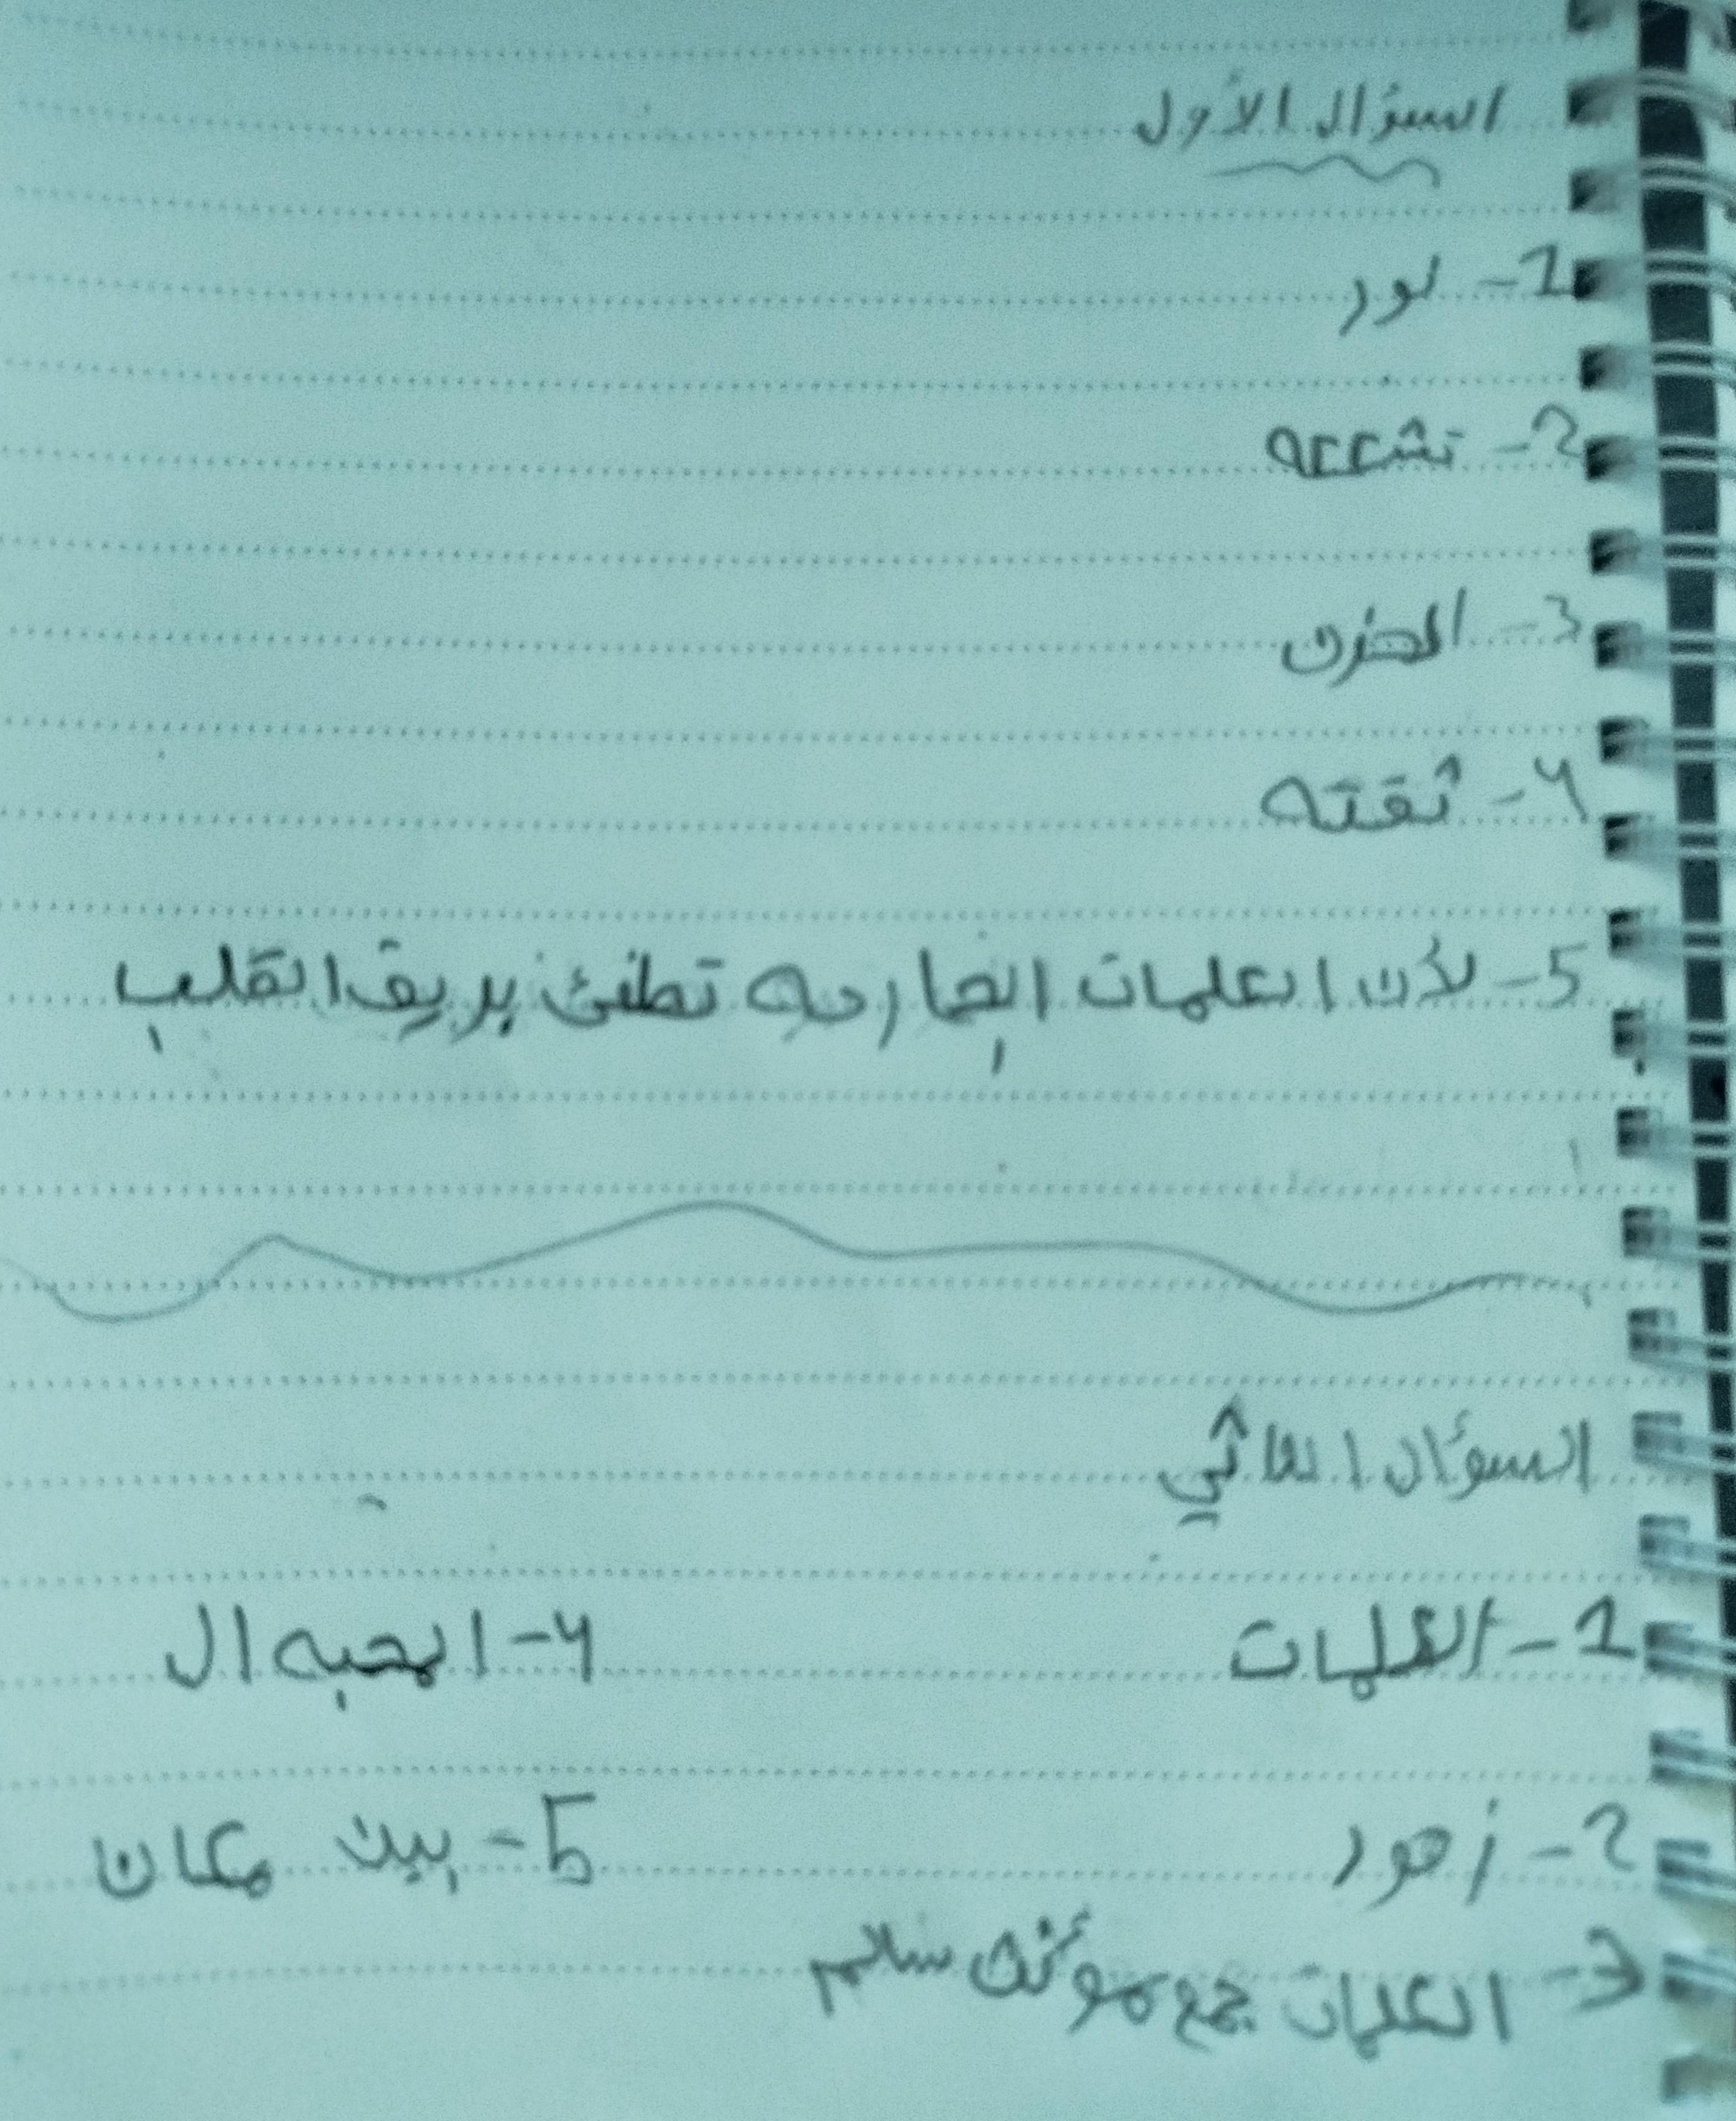 السؤال الأول
1- نور
2- تشععه
3- الحزن
4- ثقته
5- لأن الكلمات الجارحه تطفئ بريق القلب
السؤال الثاني
1- الكلمات
4- المحبه ال
2- زهور
5- بيت مكان
3- الكلمات جمع مؤنث سالم